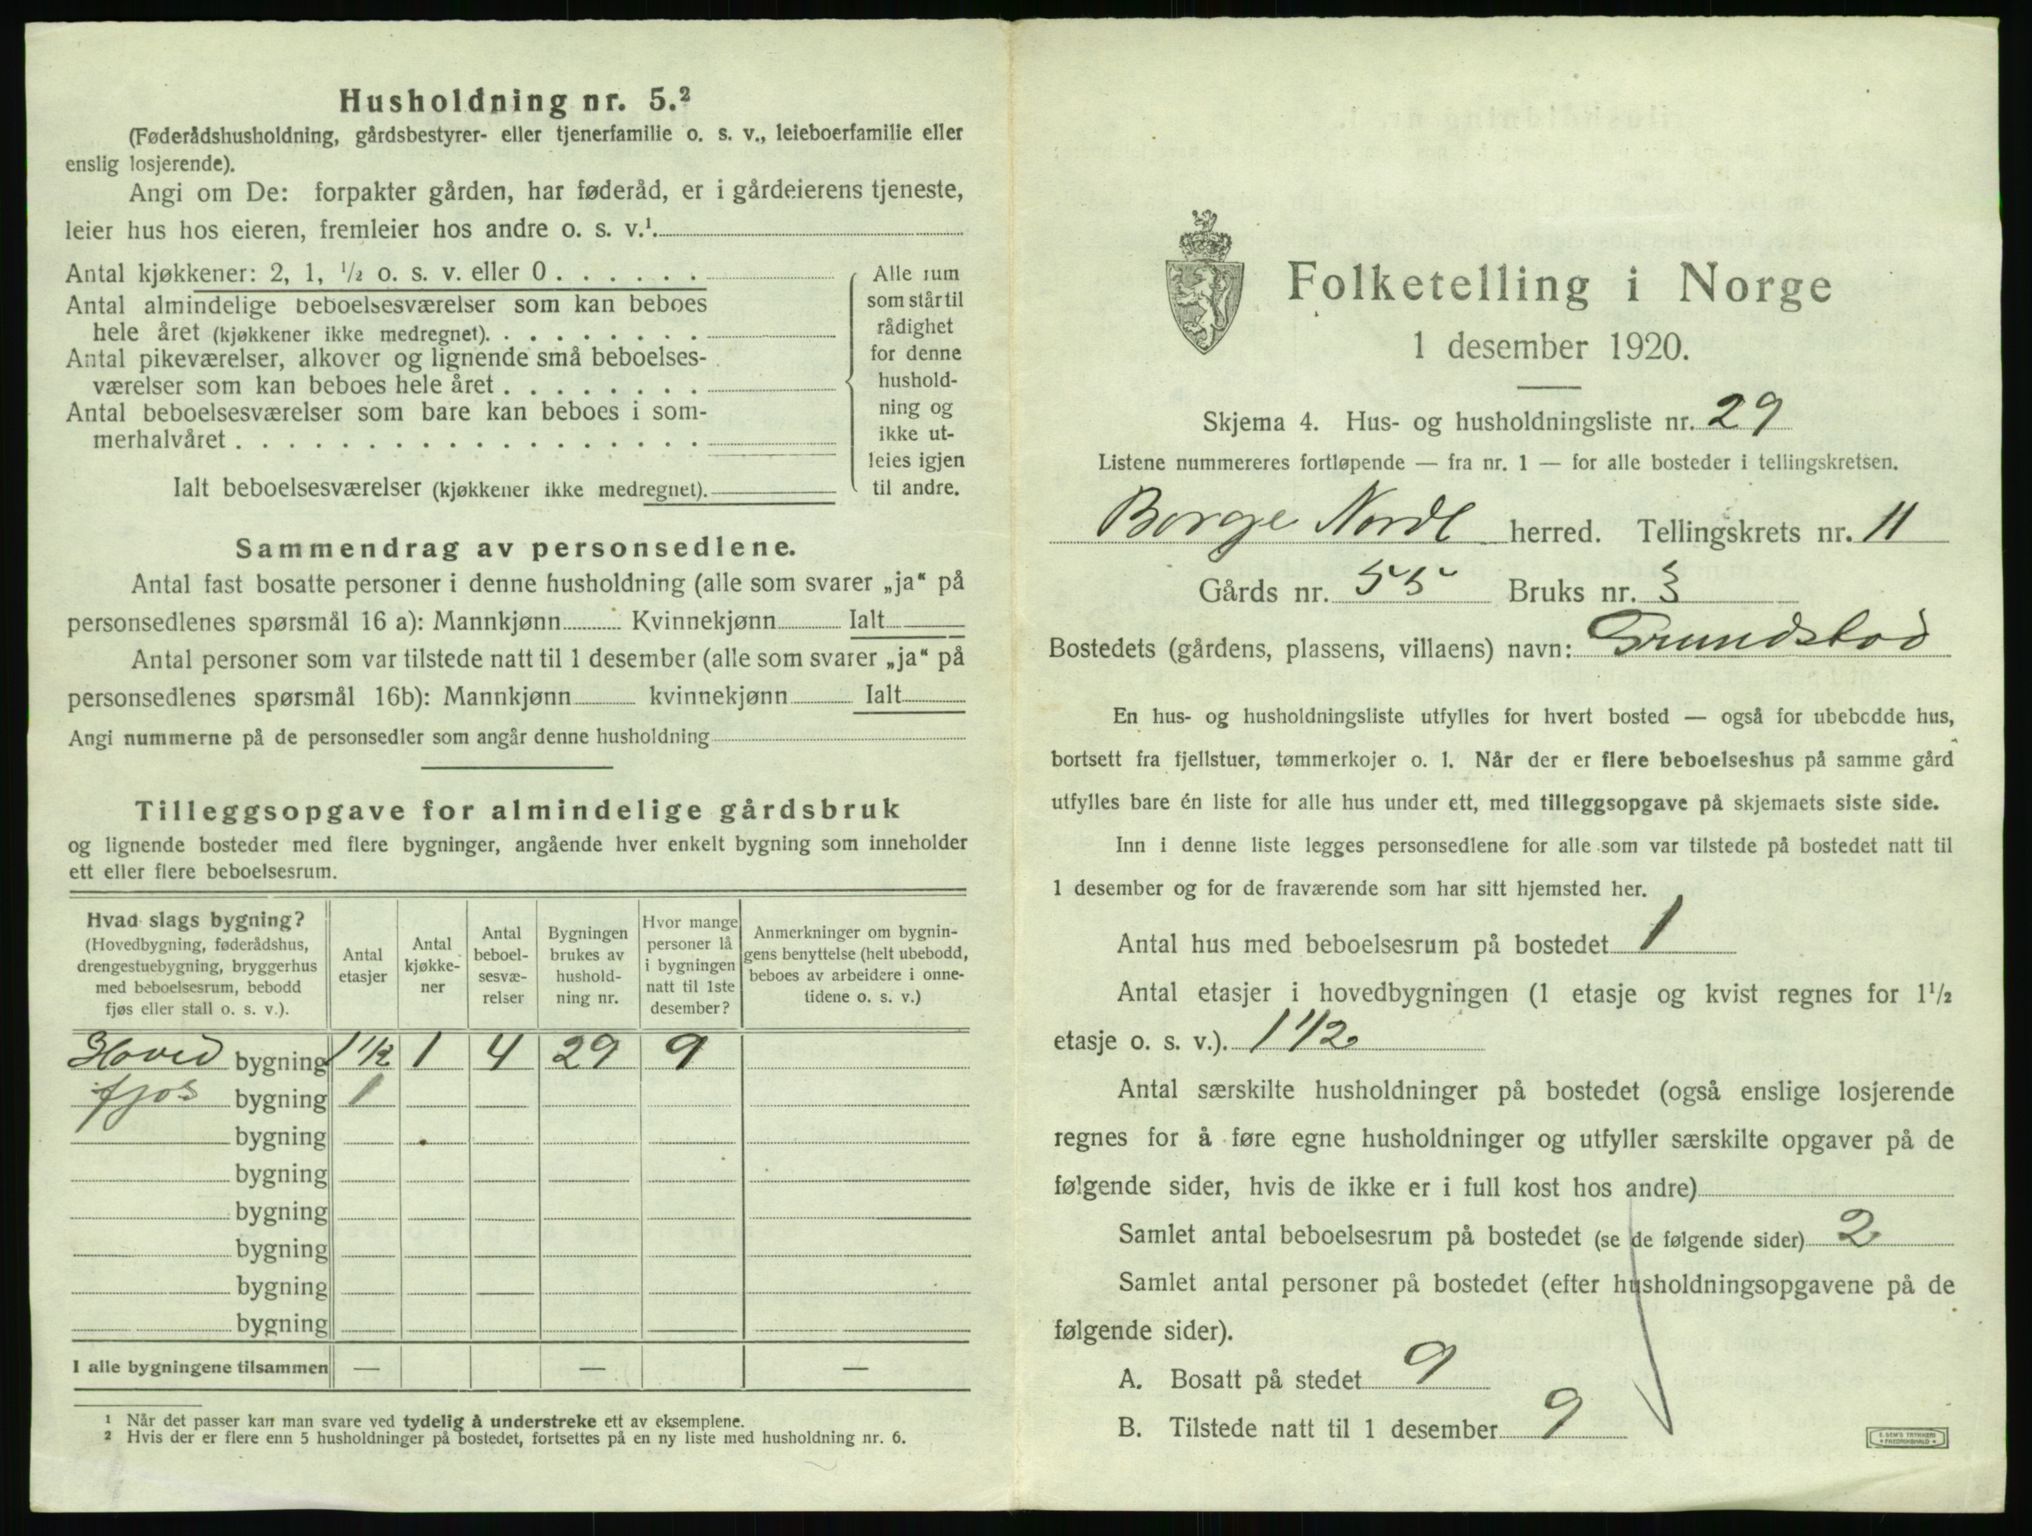 Husholdning nr. 5.²
(Føderådshusholdning, gårdsbestyrer- eller tjenerfamilie o. s. v., leieboerfamilie eller
enslig losjerende).
Angi om De: forpakter gården, har føderåd, er i gårdeierens tjeneste,
leier hus hos eieren, fremleier hos andre o. s. v.¹.
Antal kjøkkener: 2, 1, ½ o. s. v. eller 0 . . . . . .
Antal almindelige beboelsesværelser som kan beboes
hele året (kjøkkener ikke medregnet). . . . . . . . .
Antal pikeværelser, alkover og lignende små beboelses-
værelser som kan beboes hele året . . . . . . . .
Antal beboelsesværelser som bare kan beboes i som-
merhalvåret . . . . . . . . . . . . . . . . . .
Ialt beboelsesværelser (kjøkkener ikke medregnet).
Alle rum
som står til
rådighet
for denne
hushold-
ning og
ikke ut-
leies igjen
til andre.
Sammendrag av personsedlene.
Antal fast bosatte personer i denne husholdning (alle som svarer „ja“ på
personsedlenes spørsmål 16 a): Mannkjønn Kvinnekjønn Ialt
Antal personer som var tilstede natt til 1 desember (alle som svarer „ja“ på
personsedlenes spørsmål 16b): Mannkjønn kvinnekjønn Ialt
Angi nummerne på de personsedler som angår denne husholdning
Tilleggsopgave for almindelige gårdsbruk
og lignende bosteder med flere bygninger, angående hver enkelt bygning som inneholder
ett eller flere beboelsesrum.
Hvad slags bygning?
(Hovedbygning, føderådshus,
drengestuebygning, bryggerhus
med beboelsesrum, bebodd
fjøs eller stall o. s. v.).
Antal
etasjer
Antal
kjøkke-
ner
Antal
beboel-
sesvæ-
relser
Bygningen
brukes av
hushold-
ning nr.
Hvor mange
personer lå
i bygningen
natt til 1ste
desember?
Anmerkninger om bygnin-
gens benyttelse (helt ubebodd,
beboes av arbeidere i onne-
tidene o. s. v.)
Hoved bygning 1 1/2 1 4 29 9
fjøs bygning 1
bygning
bygning
bygning
bygning
bygning
bygning
I alle bygningene tilsammen — — —
¹ Når det passer kan man svare ved tydelig å understreke ett av eksemplene.
² Hvis der er flere enn 5 husholdninger på bostedet, fortsettes på en ny liste med husholdning nr. 6.
Folketelling i Norge
1 desember 1920.
Skjema 4. Hus- og husholdningsliste nr. 29
Listene nummereres fortløpende — fra nr. 1 — for alle bosteder i tellingskretsen.
Borge Nordl herred. Tellingskrets nr. 11
Gårds nr. 55 Bruks nr. 3
Bostedets (gårdens, plassens, villaens) navn: Grundstad
En hus- og husholdningsliste utfylles for hvert bosted — også for ubebodde hus,
bortsett fra fjellstuer, tømmerkojer o. l. Når der er flere beboelseshus på samme gård
utfylles bare én liste for alle hus under ett, med tilleggsopgave på skjemaets siste side.
Inn i denne liste legges personsedlene for alle som var tilstede på bostedet natt til
1 desember og for de fraværende som har sitt hjemsted her.
Antal hus med beboelsesrum på bostedet 1
Antal etasjer i hovedbygningen (1 etasje og kvist regnes for 1½
etasje o. s. v.). 1 1/2
Antal særskilte husholdninger på bostedet (også enslige losjerende
regnes for å føre egne husholdninger og utfyller særskilte opgaver på de
følgende sider, hvis de ikke er i full kost hos andre)
Samlet antal beboelsesrum på bostedet (se de følgende sider) 2
Samlet antal personer på bostedet (efter husholdningsopgavene på de
følgende sider).
A. Bosatt på stedet 9
B. Tilstede natt til 1 desember 9
E. SEM'S TRYKKERI
FREDRIKSHALD